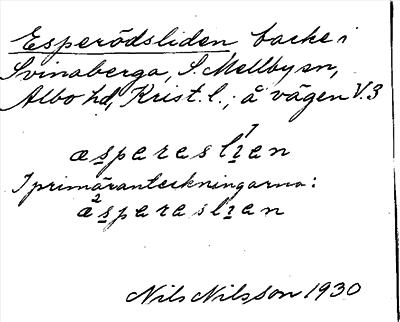 Esperödsliden, backe i
Svinaberga, S. Mellby sn,
Albo hd, Krist. l.; å vägen V.3
æspæreslıæn
I primäranteckningarna:
æspæræslıæn
Nils Nilsson 1930